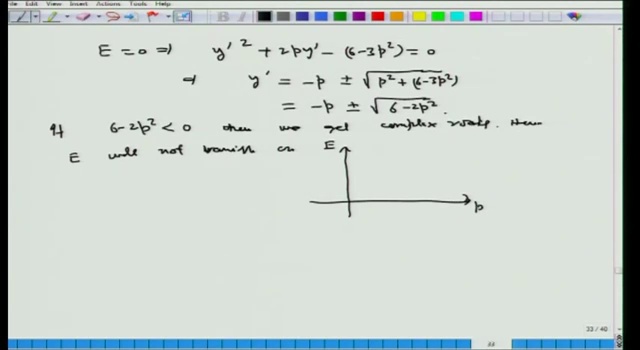 File Edit View Insert Actions Tools Help
E = 0 ⇒ y'² + 2py' - (6-3p²) = 0
⇒ y' = -p ± √p² + (6-3p²)
= -p ± √6-2p².
If 6-2p² < 0 then we get complex roots. Then
E will not vanish
E
p
33 / 40
33